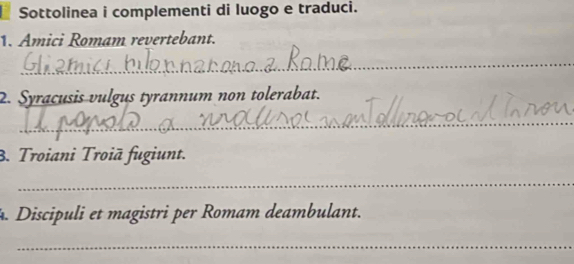 Sottolinea i complementi di luogo e traduci.
1. Amici Romam revertebant.
Gli amici ritornarono a Roma
2. Syracusis vulgus tyrannum non tolerabat.
Il popolo a non tollerava il
3. Troiani Troiā fugiunt.
4. Discipuli et magistri per Romam deambulant.